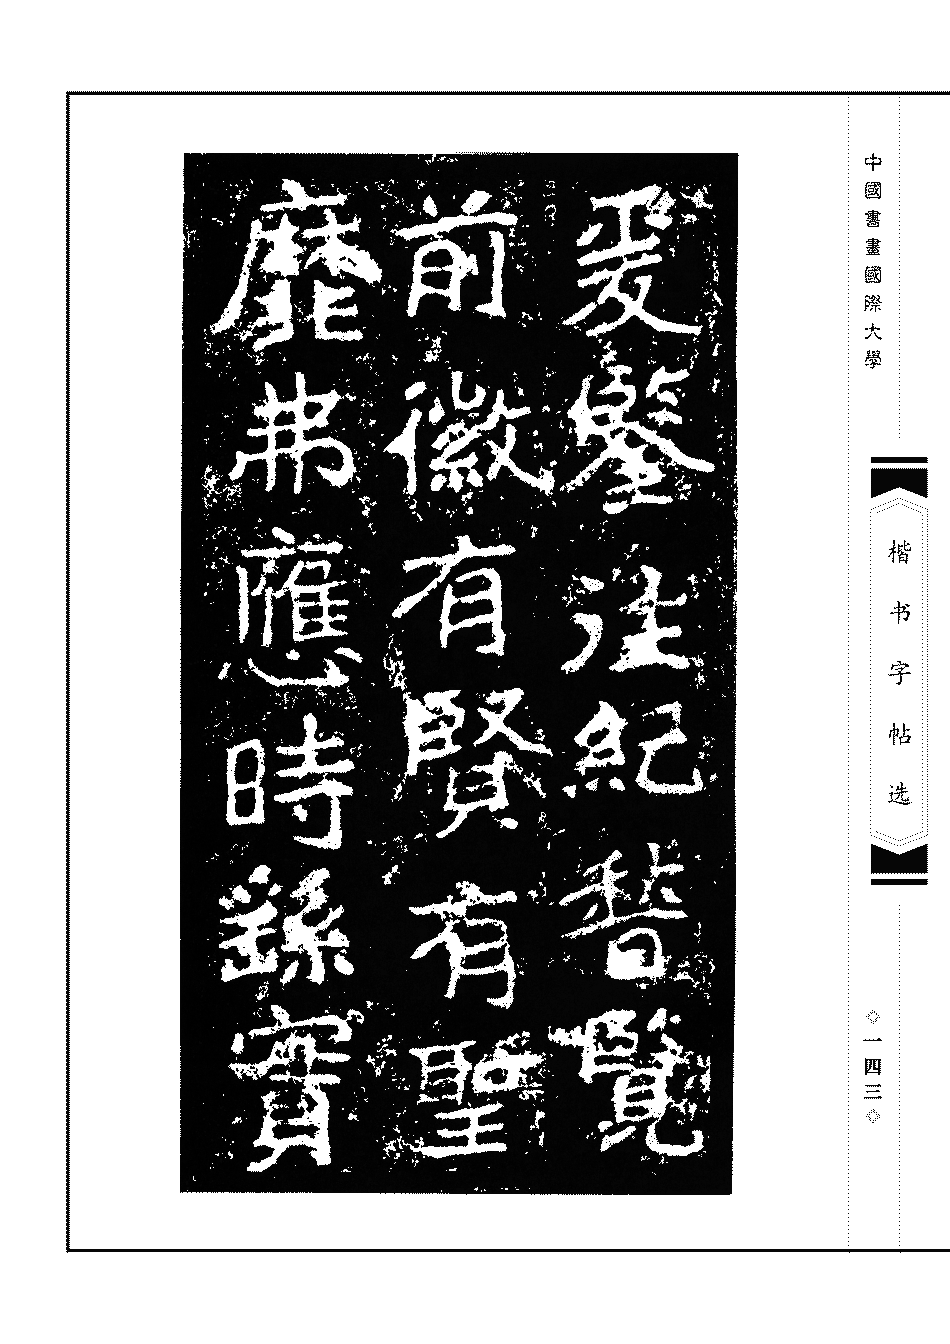 中國書畫國際大學
楷书字帖选
◇一四三◇
爰鑒往紀稽覽
前徽有賢有聖
靡弗應時繇實